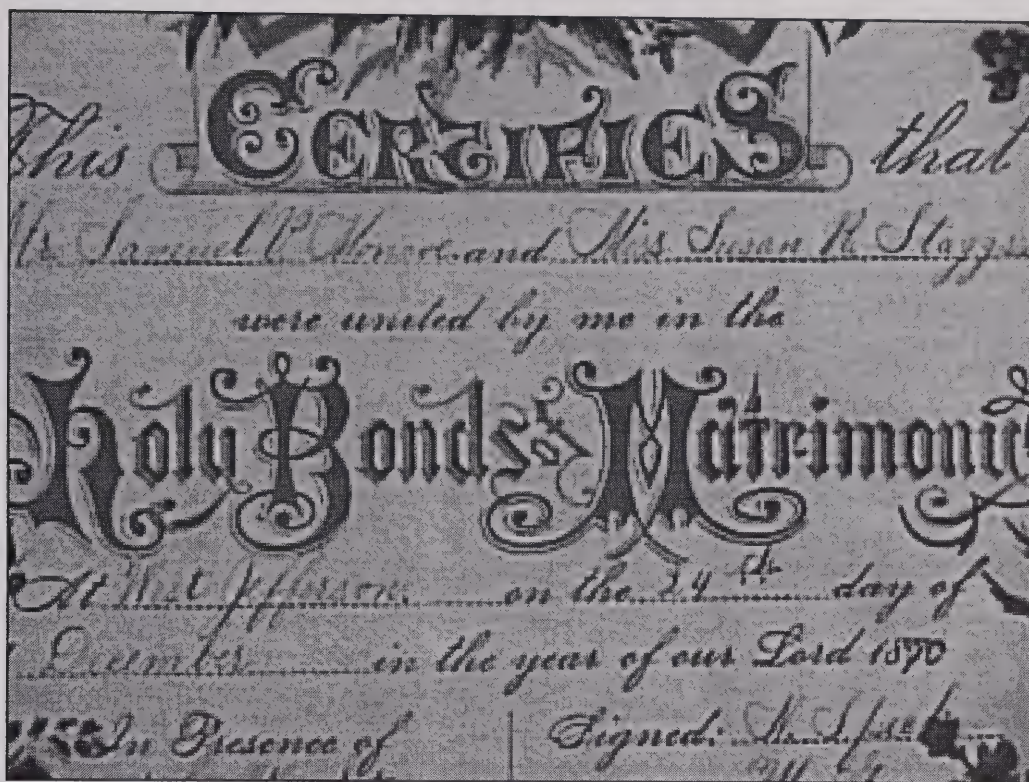 This CERTIFIES that
Mr. Samuel P. Monroe and Miss Susan R. Staggs
were united by me in the
Holy Bonds of Matrimony
At West Jefferson on the 24th day of
December in the year of our Lord 1890
In Presence of Signed: